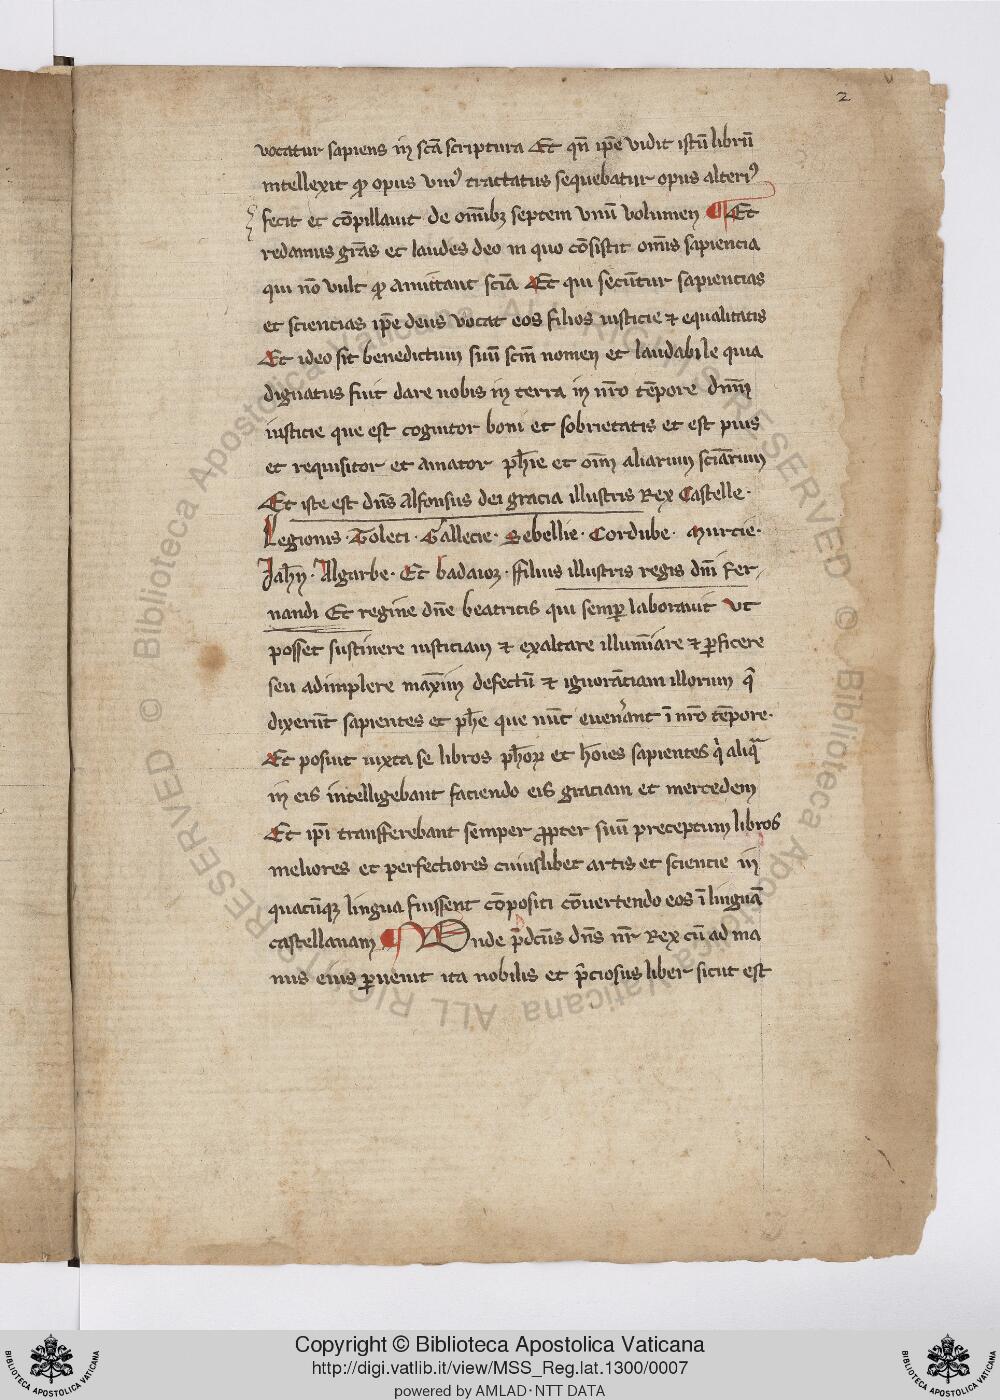 2
vocatur sapiens in scā scriptura Et qn̄ ip̄e vidit istū librū
intellexit ꝙ opus vniꝰ tractatus sequebatur opus alteriꝰ
fecit et cōpillauit de om̄ibꝫ septem vnū volumen ¶ Et
redamus gr̄as et laudes deo in quo cōsistit om̄is sapiencia
qui nō vult ꝙ amittant sciā Et qui secūtur sapiencias
et sciencias ip̄e deus vocat eos filios iusticie ⁊ equalitatis
Et ideo sit benedictum suū scm̄ nomen et laudabile quia
dignatus fuit dare nobis in terra in nr̄o tēpore dnm̄
iusticie que est cognitor boni et sobrietatis et est pius
et requisitor et amator ph̄ie et om̄ aliarum sciārum
Et iste est dn̄s Alfonsus dei gracia illustris Rex Castelle ·
Legionis · Toleti · Gallecie · Sebellie · Cordube · Murcie ·
Jah̄n · Algarbe · Et badaioz · ffilius illustris regis dn̄i fer
nandi Et regine dn̄e beatricis qui semꝑ laborauit vt
posset sustinere iusticiam ⁊ exaltare illumīare ⁊ ꝑficere
seu adimplere maxim̄ defectū ⁊ ignorāciam illorum q̄
dixerūt sapientes et ph̄e que nūt euen̄ant ī nr̄o tēpore ·
Et posuit iuxta se libros ph̄oꝝ et hōies sapientes q̇ aliq̄
in eis intelligebant faciendo eis graciam et mercedem
Et ip̄i transfferebant semper ꝓpter suū preceptum libros
meliores et perfectiores cuiuslibet artis et sciencie in
quacūqꝫ lingua fuissent cōpositi cōuertendo eos ī linguā
castellanam ¶ Vnde p̄dcūs dn̄s nr̄ Rex cū ad ma
nus eius ꝑuenit ita nobilis et p̄ciosus liber sicut est
Copyright © Biblioteca Apostolica Vaticana
http://digi.vatlib.it/view/MSS_Reg.lat.1300/0007
powered by AMLAD·NTT DATA
BIBLIOTECA APOSTOLICA VATICANA
BIBLIOTECA APOSTOLICA VATICANA
© Biblioteca Apostolica Vaticana ALL RIGHTS RESERVED © Biblioteca Apostolica Vaticana ALL RIGHTS RESERVED